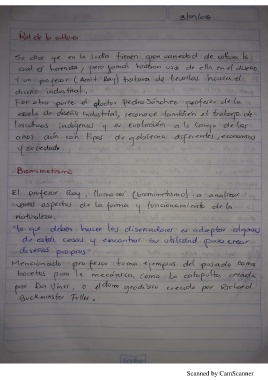 Rol de la cultura
Se dice que en la India tienen gran variedad de cultura lo
cual es hermoso, pero jamás habían uso de ella en el diseño
Y un profesor (Amit Ray) trataba de llevarlos hacia el
diseño industrial.
Por otra parte el doctor Pedro Sánchez profesor de la
escuela de diseño industrial, reconoce también el trabajo de
culturas indígenas y su evolución a lo largo de los
años aún con tipos de gobierno diferentes, economías
y sociedad.
Biomimetismo
El profesor Ray, llamaba (biomimetismo) a analizar
varios aspectos de la forma y funcionamiento de la
naturaleza.
"Lo que deben hacer los diseñadores es adoptar algunas
de estas cosas y encontrar su utilidad para crear
diversas propias"
Mencionado profesor toma ejemplos del pasado como
bocetos para la mecánica, como la catapulta creada
por Da Vinci, o el domo geodésico creado por Richard
Buckminster Fuller.
Scanned by CamScanner